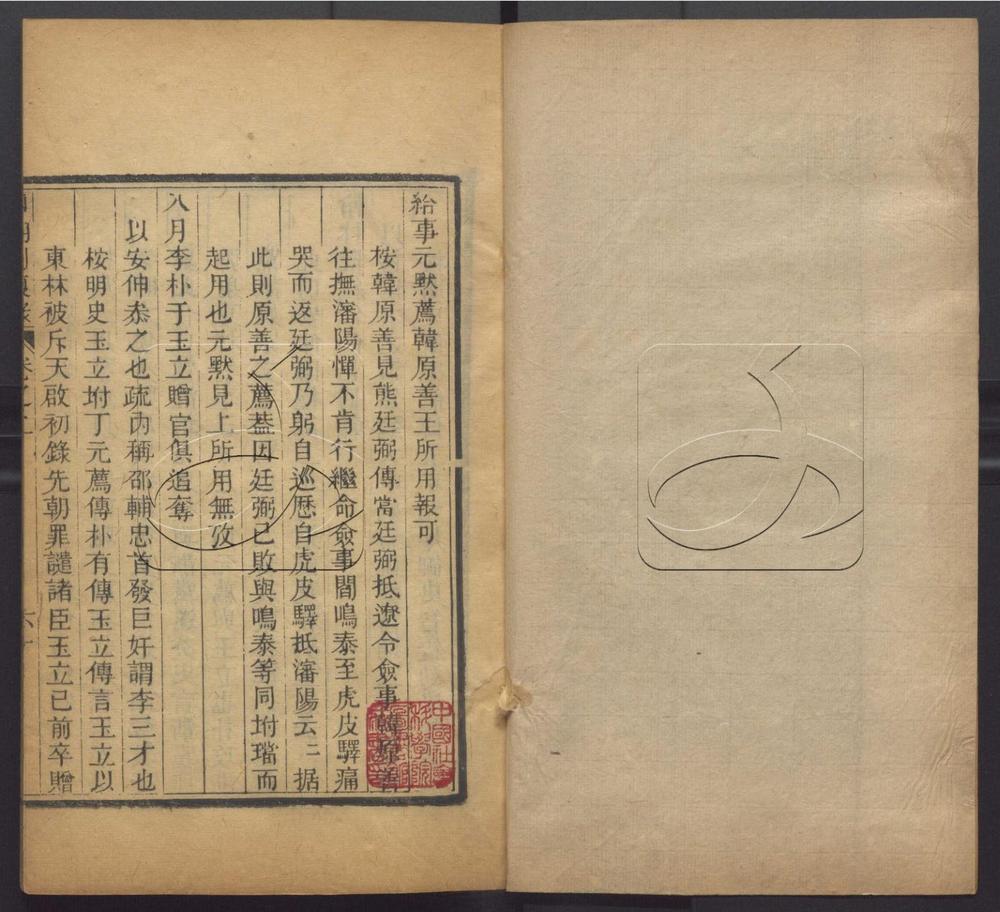 給事元默薦韓原善王所用報可
桉韓原善見熊廷弼傳當廷弼抵遼令僉事韓原善
往撫瀋陽憚不肯行繼命僉事閻鳴泰至虎皮驛痛
哭而返廷弼乃躬自巡歷自虎皮驛抵瀋陽云〻据
此則原善之薦葢因廷弼已敗與鳴泰等同坿璫而
起用也元默見上所用無攷
八月李朴于玉立贈官俱追奪
以安伸叅之也疏內稱邵輔忠首發巨奸謂李三才也
桉明史玉立坿丁元薦傳朴有傳玉立傳言玉立以
東林被斥天啟初錄先朝罪譴諸臣玉立已前卒贈
中國社會
科學院